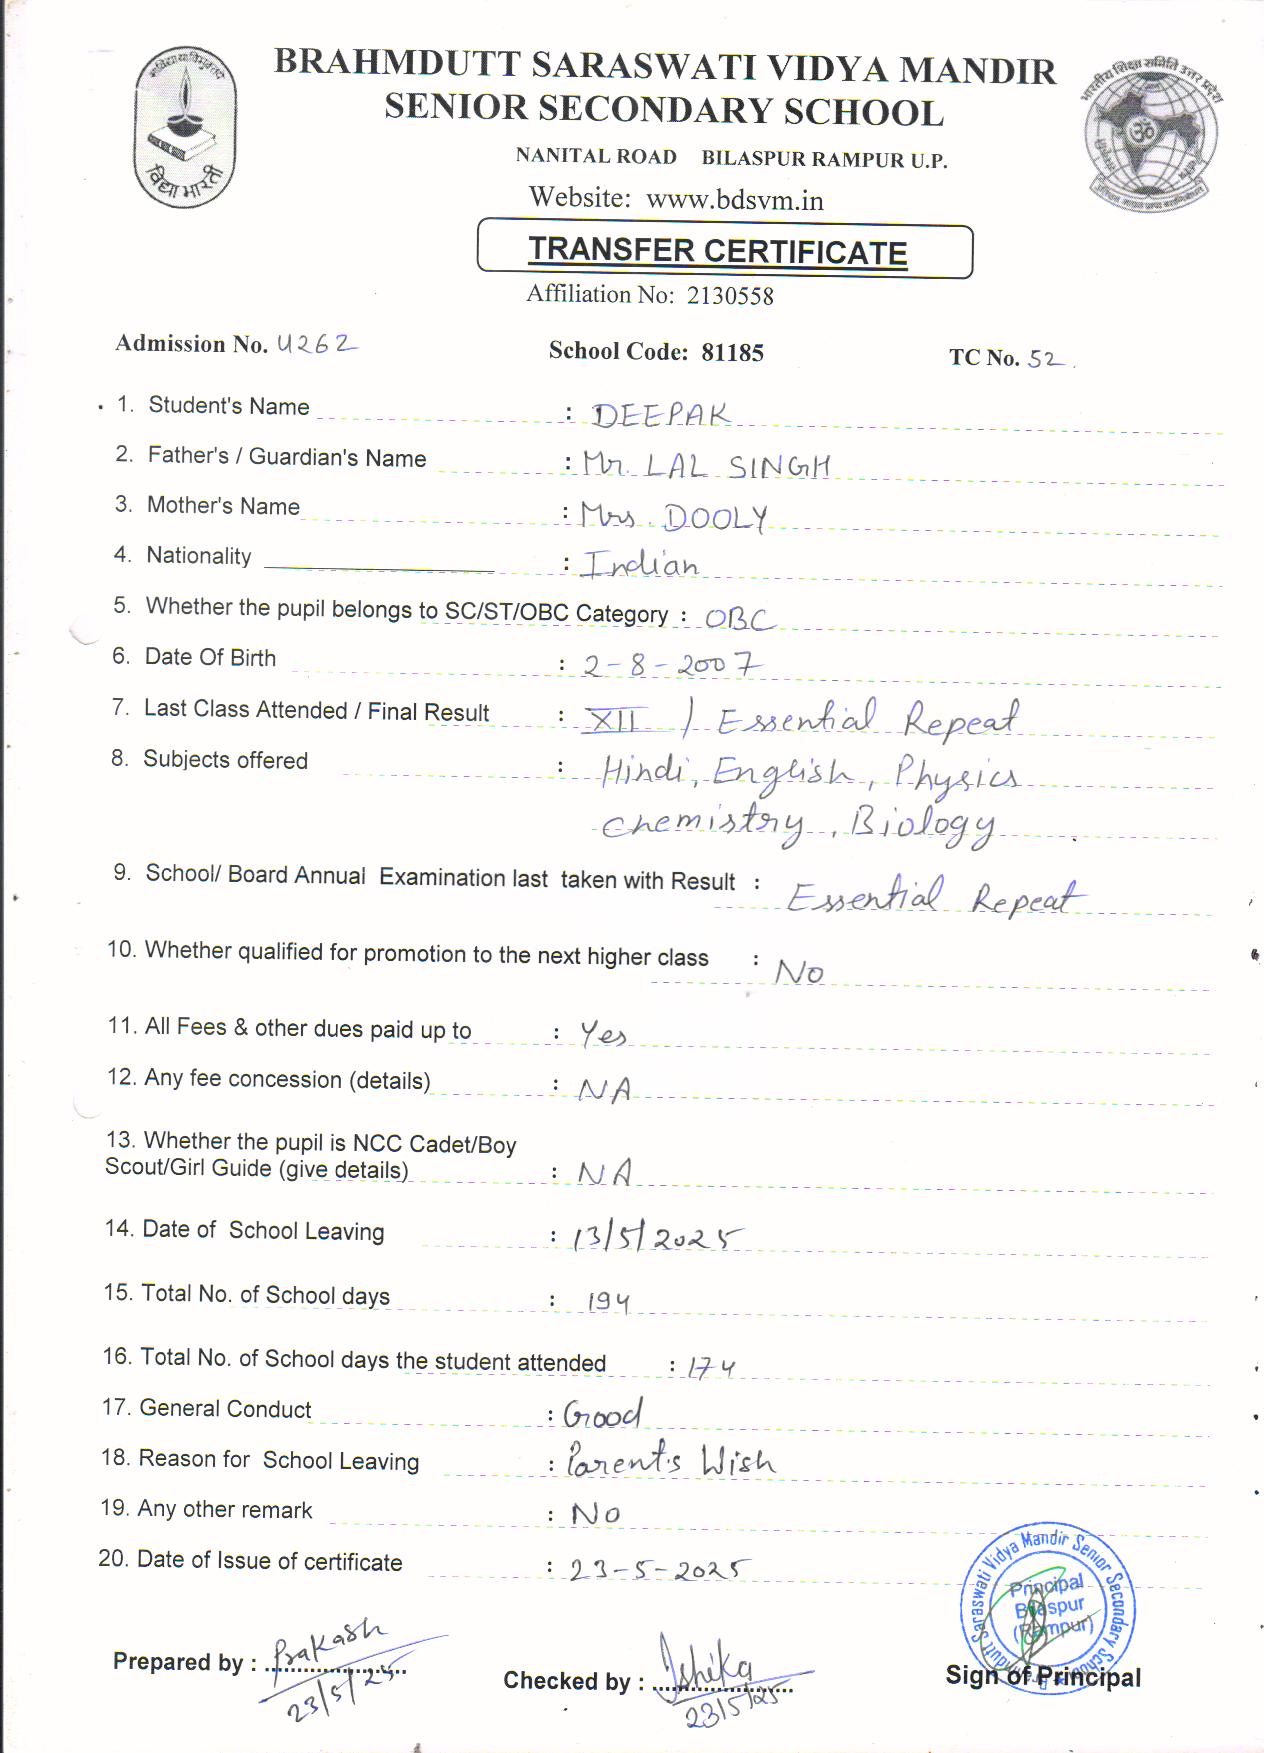 BRAHMDUTT SARASWATI VIDYA MANDIR
SENIOR SECONDARY SCHOOL
NANITAL ROAD BILASPUR RAMPUR U.P.
Website: www.bdsvm.in
विद्या भारती
भारतीय शिक्षा समिति उत्तर प्रदेश
TRANSFER CERTIFICATE
Affiliation No: 2130558
Admission No. 4262 School Code: 81185 TC No. 52.
1. Student's Name : DEEPAK
2. Father's / Guardian's Name : Mr. LAL SINGH
3. Mother's Name : Mrs. DOOLY
4. Nationality : Indian
5. Whether the pupil belongs to SC/ST/OBC Category : OBC
6. Date Of Birth : 2-8-2007
7. Last Class Attended / Final Result : XII / Essential Repeat
8. Subjects offered : Hindi, English, Physics
Chemistry, Biology
9. School/ Board Annual Examination last taken with Result : Essential Repeat
10. Whether qualified for promotion to the next higher class : No
11. All Fees & other dues paid up to : Yes
12. Any fee concession (details) : NA
13. Whether the pupil is NCC Cadet/Boy
Scout/Girl Guide (give details) : NA
14. Date of School Leaving : 13/5/2025
15. Total No. of School days : 194
16. Total No. of School days the student attended : 174
17. General Conduct : Good
18. Reason for School Leaving : Parent's Wish
19. Any other remark : No
20. Date of Issue of certificate : 23-5-2025
Brahmdutt Saraswati Vidya Mandir Senior Secondary School
Principal
Bilaspur
(Rampur)
Prepared by : Prakash
23/5/25
Checked by : Ishika
23/5/25
Sign of Principal